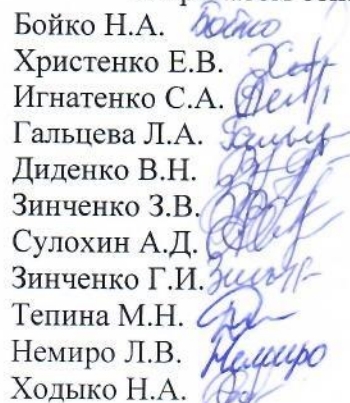 Бойко Н.А. Бойко
Христенко Е.В.
Игнатенко С.А.
Гальцева Л.А.
Диденко В.Н.
Зинченко З.В.
Сулохин А.Д.
Зинченко Г.И.
Тепина М.Н.
Немиро Л.В. Немиро
Ходыко Н.А.